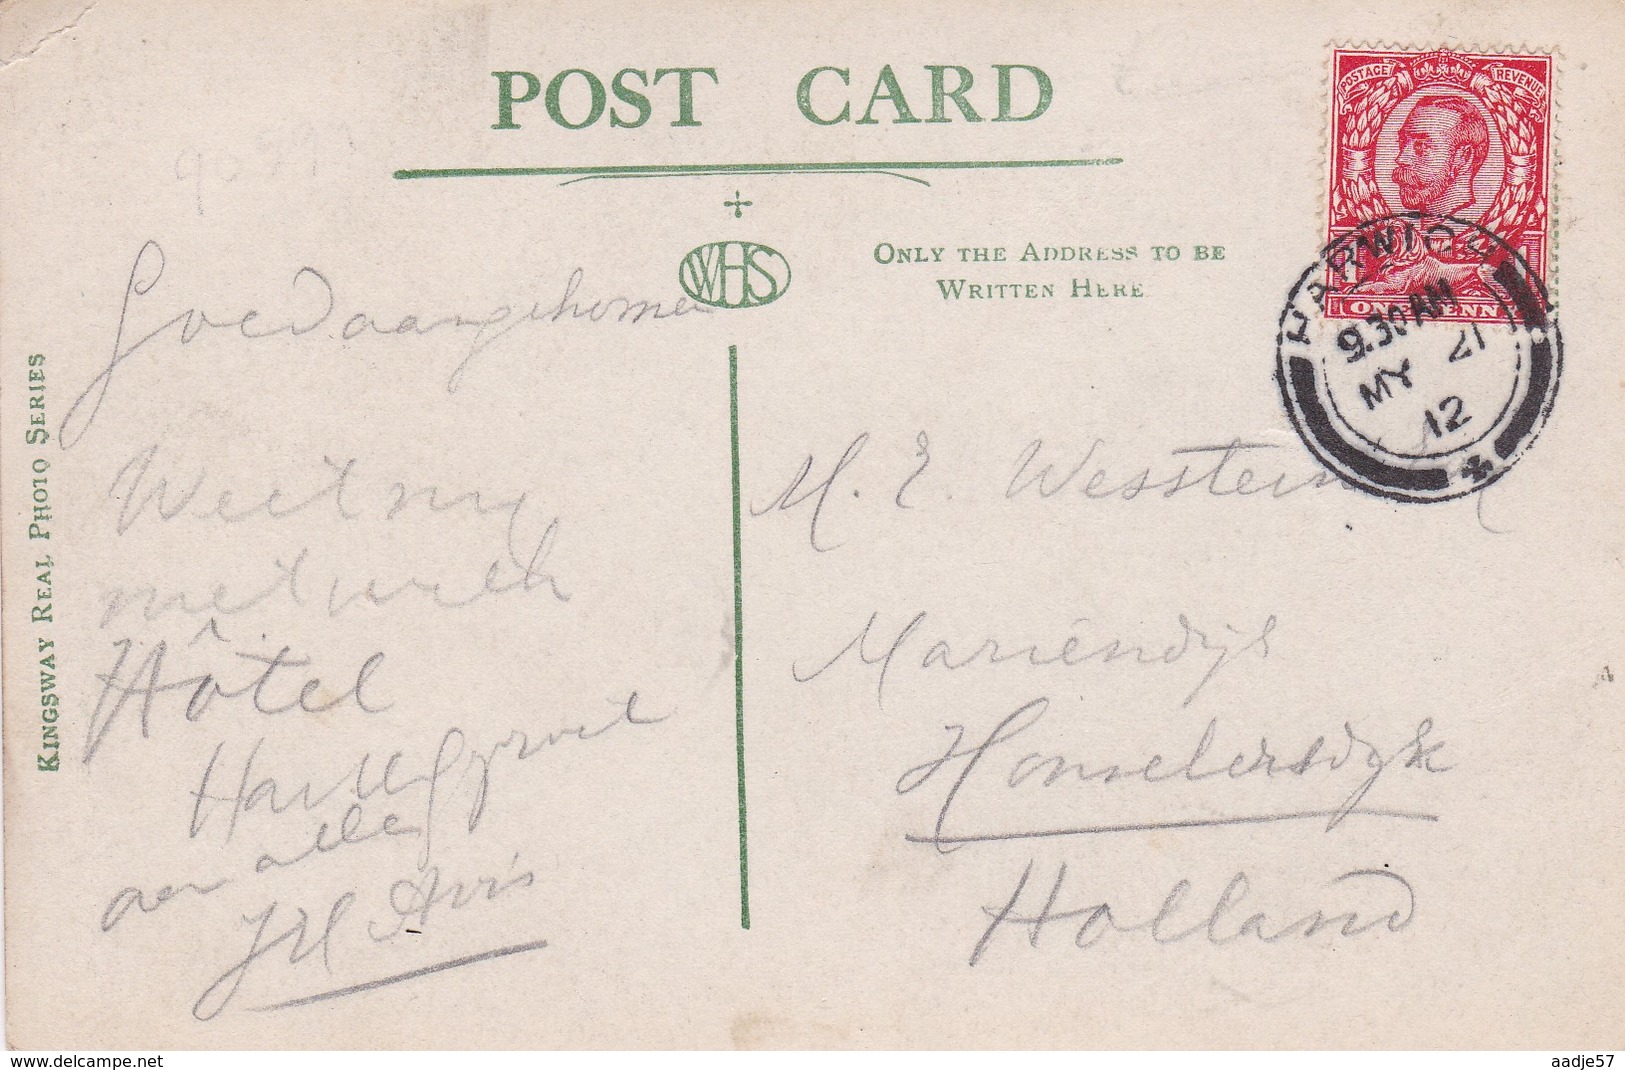 POST CARD
WHS
ONLY THE ADDRESS TO BE
WRITTEN HERE
KINGSWAY REAL PHOTO SERIES
POSTAGE REVENUE
ONE PENNY
HARWICH
9.30AM
MY 21
12
Goed aangekomen
Weet nog
niet welk
Hôtel
Hartl groet
aan allen
JH
M. E. Wesstein
Mariëndijk
Honselersdijk
Holland
www.delcampe.net
aadje57